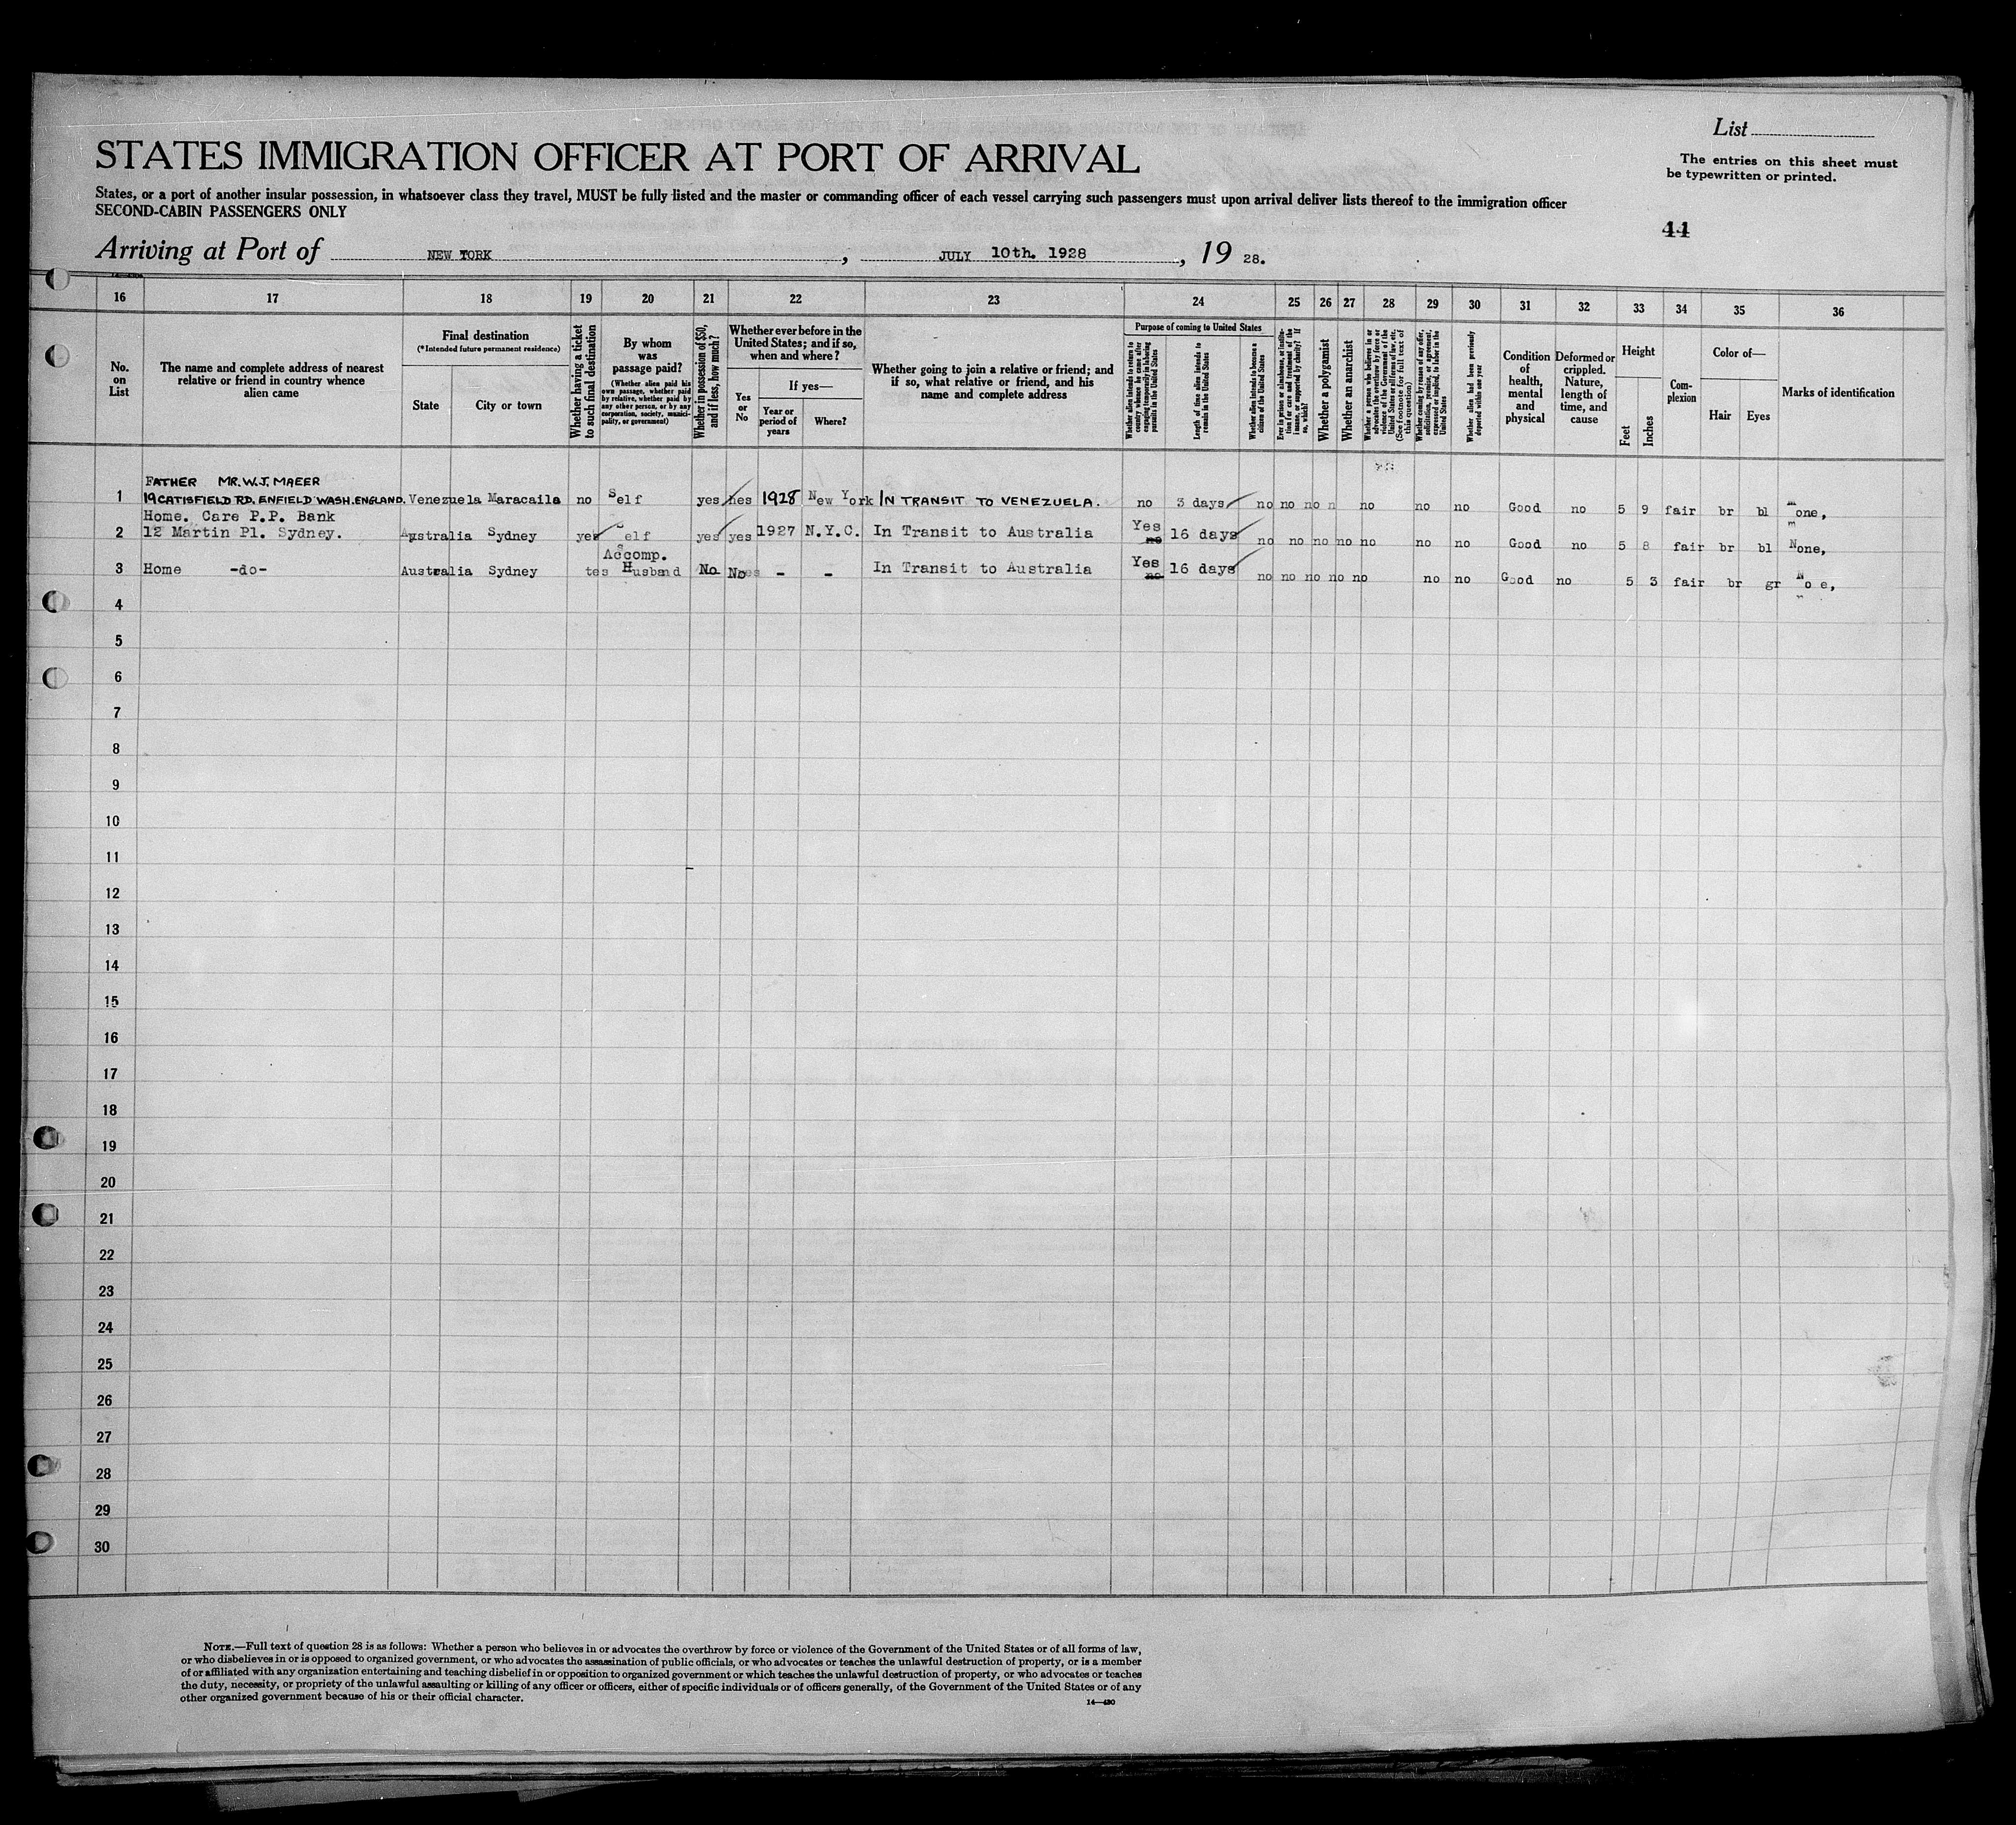 List
The entries on this sheet must
be typewritten or printed.
STATES IMMIGRATION OFFICER AT PORT OF ARRIVAL
States, or a port of another insular possession, in whatsoever class they travel, MUST be fully listed and the master or commanding officer of each vessel carrying such passengers must upon arrival deliver lists thereof to the immigration officer
SECOND-CABIN PASSENGERS ONLY
44
Arriving at Port of NEW YORK, JULY 10th. 1928, 19 28.
16 17 18 19 20 21 22 23 24 25 26 27 28 29 30 31 32 33 34 35 36
No.
on
List
The name and complete address of nearest
relative or friend in country whence
alien came
Final destination
(*Intended future permanent residence)
State
City or town
Whether having a ticket
to such final destination
By whom
was
passage paid?
(Whether alien paid his
own passage, whether paid
by relative, whether paid by
any other person, or by any
corporation, society, munici-
pality, or government)
Whether in possession of $50,
and if less, how much?
Whether ever before in the
United States; and if so,
when and where?
Yes
or
No
If yes—
Year or
period of
years
Where?
Whether going to join a relative or friend; and
if so, what relative or friend, and his
name and complete address
Purpose of coming to United States
Whether alien intends to return to
country whence he came after
engaging temporarily in laboring
pursuits in the United States
Length of time alien intends to
remain in the United States
Whether alien intends to become a
citizen of the United States
Ever in prison or almshouse, or institu-
tion for care and treatment of the
insane, or supported by charity? If
so, which?
Whether a polygamist
Whether an anarchist
Whether a person who believes in or
advocates the overthrow by force or
violence of the Government of the
United States or all forms of law, etc.
(See footnote for full text of
this question)
Whether coming by reason of any offer,
solicitation, promise, or agreement,
expressed or implied, to labor in the
United States
Whether alien had been previously
deported within one year
Condition
of
health,
mental
and
physical
Deformed or
crippled.
Nature,
length of
time, and
cause
Height
Feet
Inches
Com-
plexion
Color of—
Hair
Eyes
Marks of identification
FATHER MR. W. J. MAEER
1 19 CATISFIELD RD. ENFIELD WASH. ENGLAND. Venezuela Maracaila no Self yes hes 1928 New York IN TRANSIT TO VENEZUELA. no 3 days no no no n no no no Good no 5 9 fair br bl one,
Home. Care P.P. Bank
2 12 Martin Pl. Sydney. Australia Sydney yes Self yes yes 1927 N.Y.C. In Transit to Australia Yes no 16 days no no no no no no no Good no 5 8 fair br bl None,
Accomp.
3 Home -do- Australia Sydney tes Husband No No - - In Transit to Australia Yes no 16 days no no no no no no no Good no 5 3 fair br gr No e,
4
5
6
7
8
9
10
11
12
13
14
15
16
17
18
19
20
21
22
23
24
25
26
27
28
29
30
NOTE.—Full text of question 28 is as follows: Whether a person who believes in or advocates the overthrow by force or violence of the Government of the United States or of all forms of law,
or who disbelieves in or is opposed to organized government, or who advocates the assassination of public officials, or who advocates or teaches the unlawful destruction of property, or is a member
of or affiliated with any organization entertaining and teaching disbelief in or opposition to organized government or which teaches the unlawful destruction of property, or who advocates or teaches
the duty, necessity, or propriety of the unlawful assaulting or killing of any officer or officers, either of specific individuals or of officers generally, of the Government of the United States or of any
other organized government because of his or their official character.
14—430